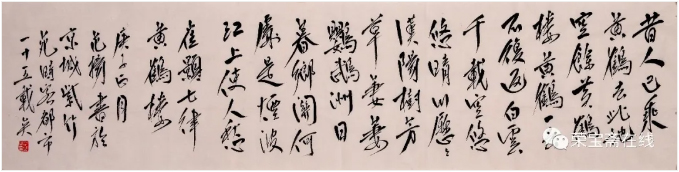 昔人已乘
黄鶴去此地
空餘黄鶴
樓黄鶴一去
不復返白雲
千載空悠
悠晴川歷々
漢陽樹芳
草萋萋
鸚鵡洲日
暮鄉關何
處是煙波
江上使人愁
崔顥七律
黄鶴樓
庚子正月
書於
京城紫竹
苑時客都市
一十五載矣
荣宝斋在线